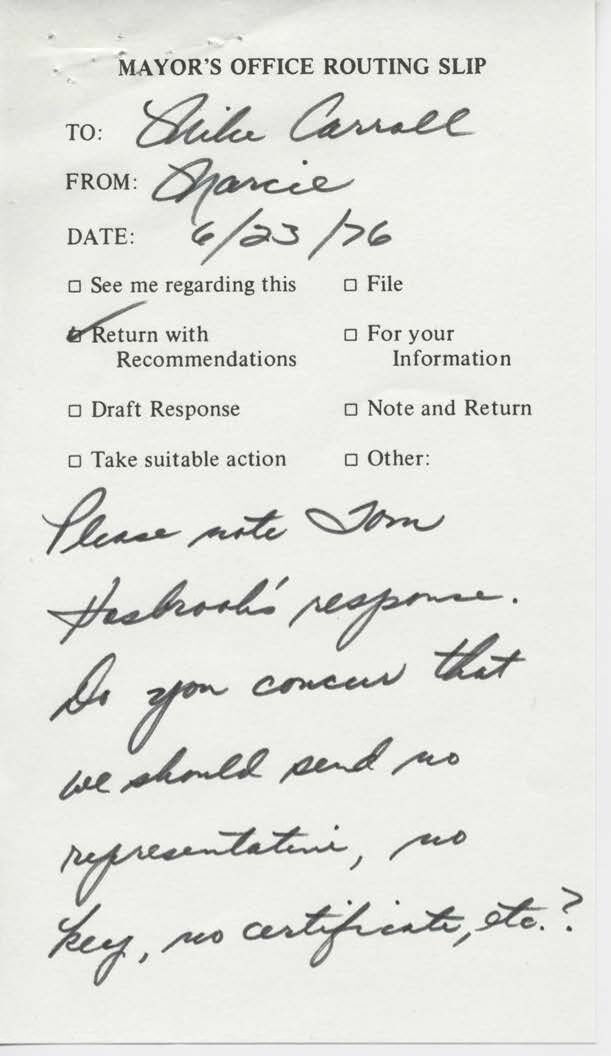 MAYOR'S OFFICE ROUTING SLIP
TO: Mike Carroll
FROM: Marcie
DATE: 6/23/76
□ See me regarding this □ File
☑ Return with Recommendations □ For your Information
□ Draft Response □ Note and Return
□ Take suitable action □ Other:
Please note Tom
Hasbrook's response.
Do you concur that
we should send no
representative, no
key, no certificate, etc.?